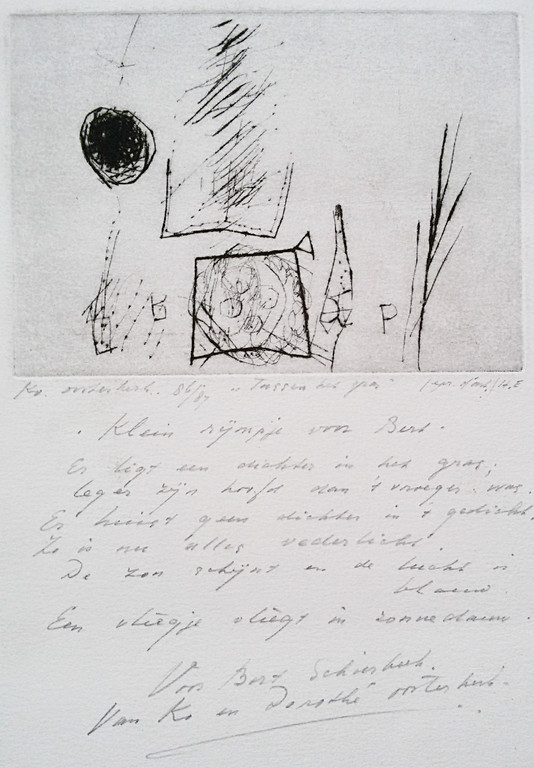 B B B P
Ko. oosterkerk. 86/87 "Tussen het gras" H.E
. Klein rijmpje voor Bert.
Er ligt een dichter in het gras,
leger zijn hoofd dan 't vroeger was.
Er huist geen dichter in 't gedicht,
Zo is nu alles vederlicht.
De zon schijnt en de lucht is
blauw.
Een vliegje vliegt in zonnedauw.
Voor Bert Schierbeek.
Van Ko en Dorothé oosterkerk.